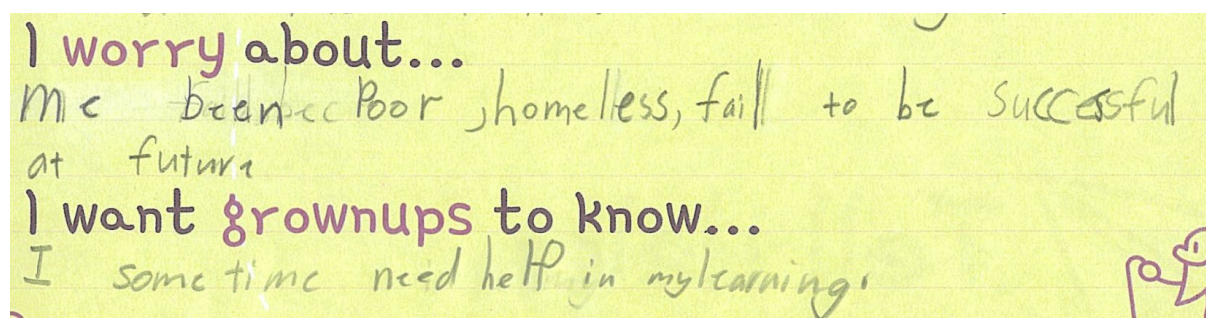 I worry about...
Me been Poor, homelless, faill to be successful
at future
I want grownups to know...
I some time need help in my learning.